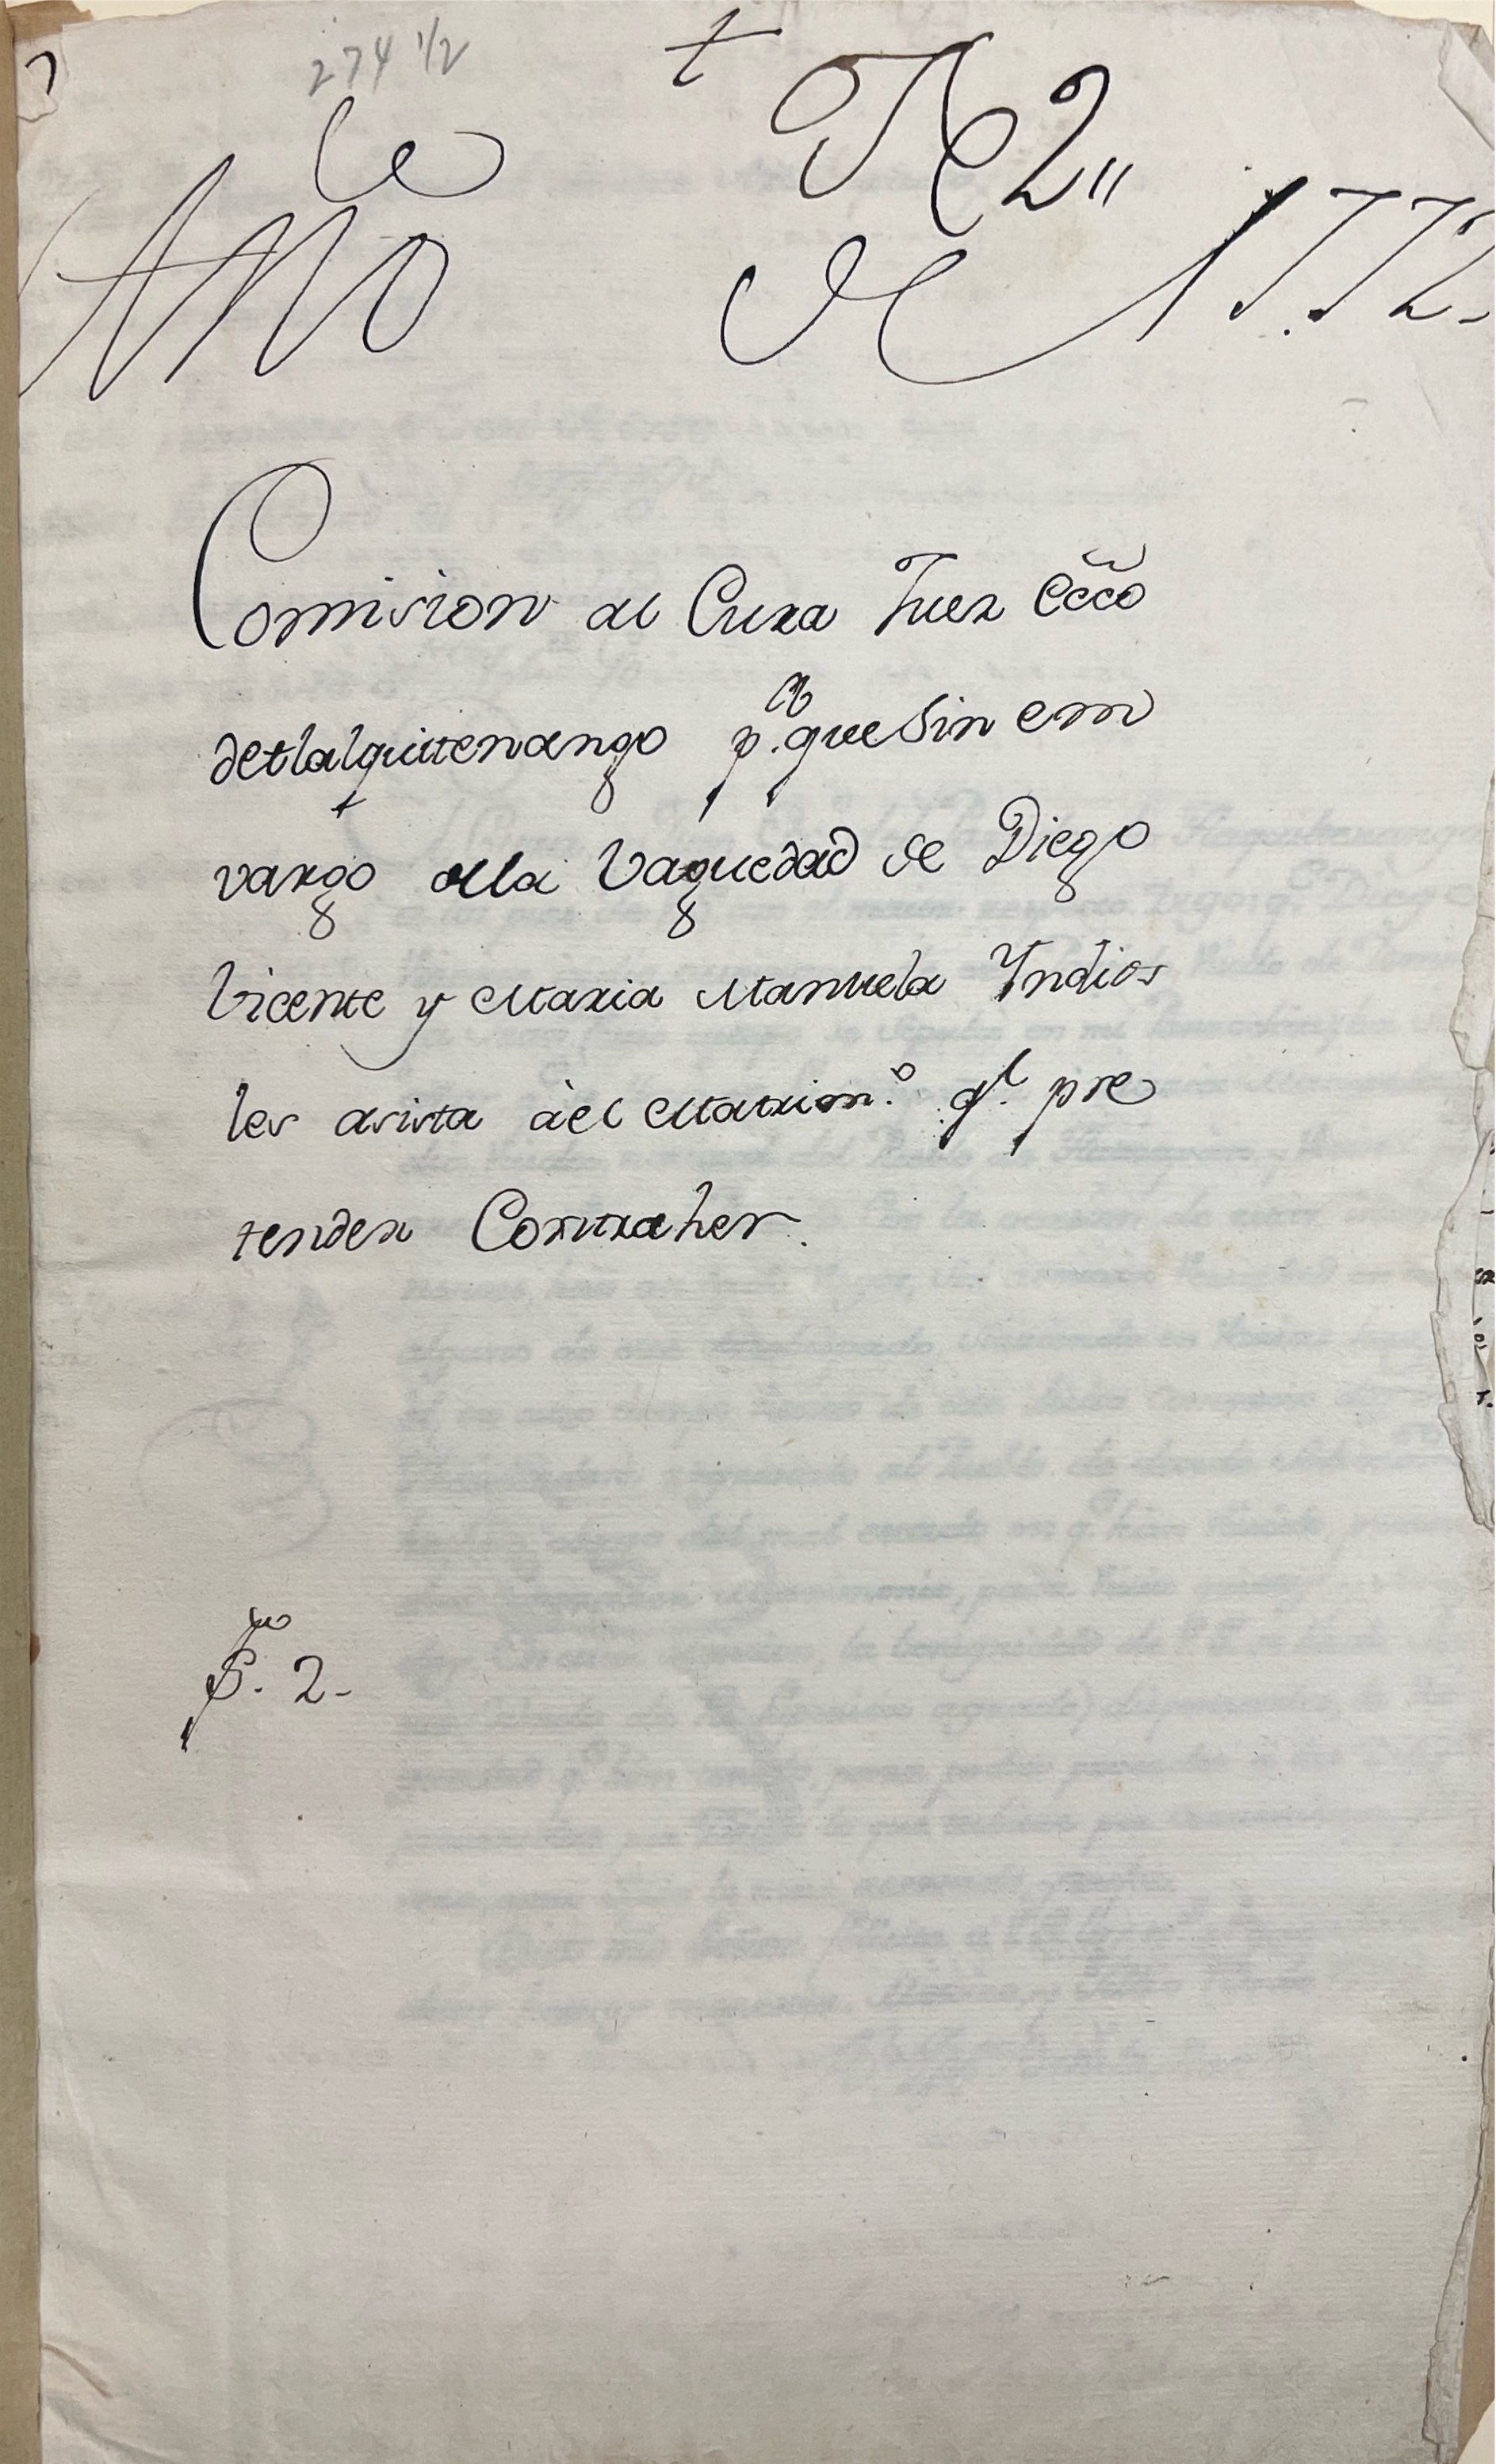 274 1/2
†
R 2"
Año de 1772.
Comision al Cura Juez Ecc̃o
detlalquitenango p.ª que Sin em
vargo de la Vaguedad de Diego
Vicente y Maria Manuela Yndios
les asista àel Matrim.º q.e pre
tenden Contraher.
2-